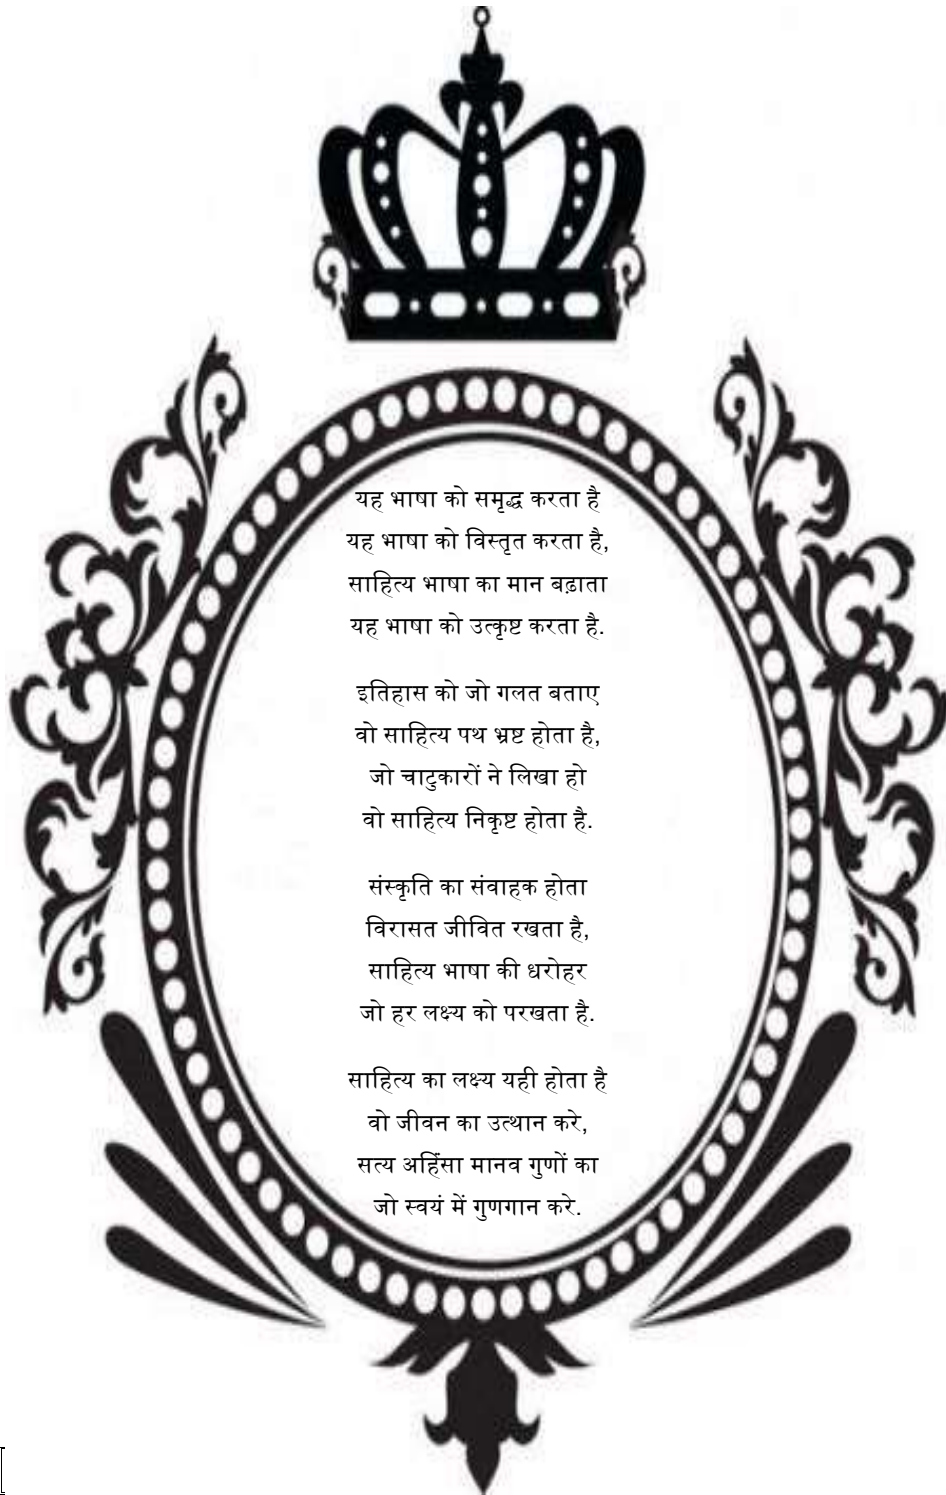 यह भाषा को समृद्ध करता है
यह भाषा को विस्तृत करता है,
साहित्य भाषा का मान बढ़ाता
यह भाषा को उत्कृष्ट करता है.
इतिहास को जो गलत बताए
वो साहित्य पथ भ्रष्ट होता है,
जो चाटुकारों ने लिखा हो
वो साहित्य निकृष्ट होता है.
संस्कृति का संवाहक होता
विरासत जीवित रखता है,
साहित्य भाषा की धरोहर
जो हर लक्ष्य को परखता है.
साहित्य का लक्ष्य यही होता है
वो जीवन का उत्थान करे,
सत्य अहिंसा मानव गुणों का
जो स्वयं में गुणगान करे.